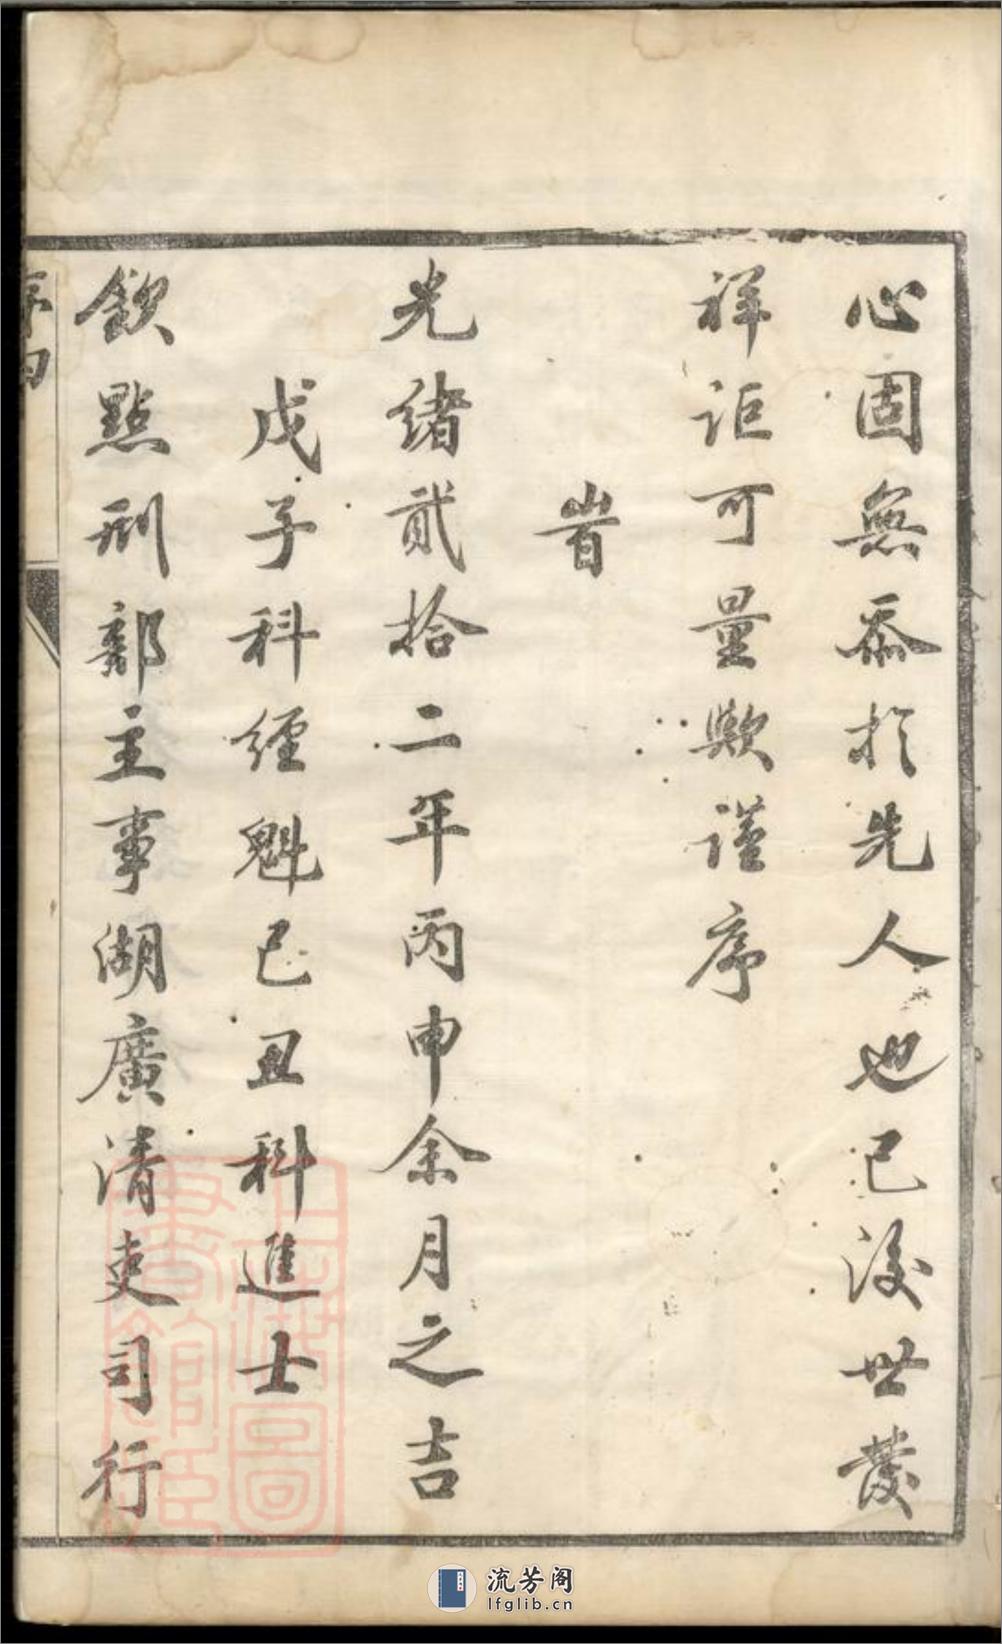 心固無忝於先人也已後世發
祥詎可量歟謹序
旹
光緒貳拾二年丙申余月之吉
戊子科經魁己丑科進士
欽點刑部主事湖廣清吏司行
序
上海圖書館藏
流芳阁
lfglib.cn